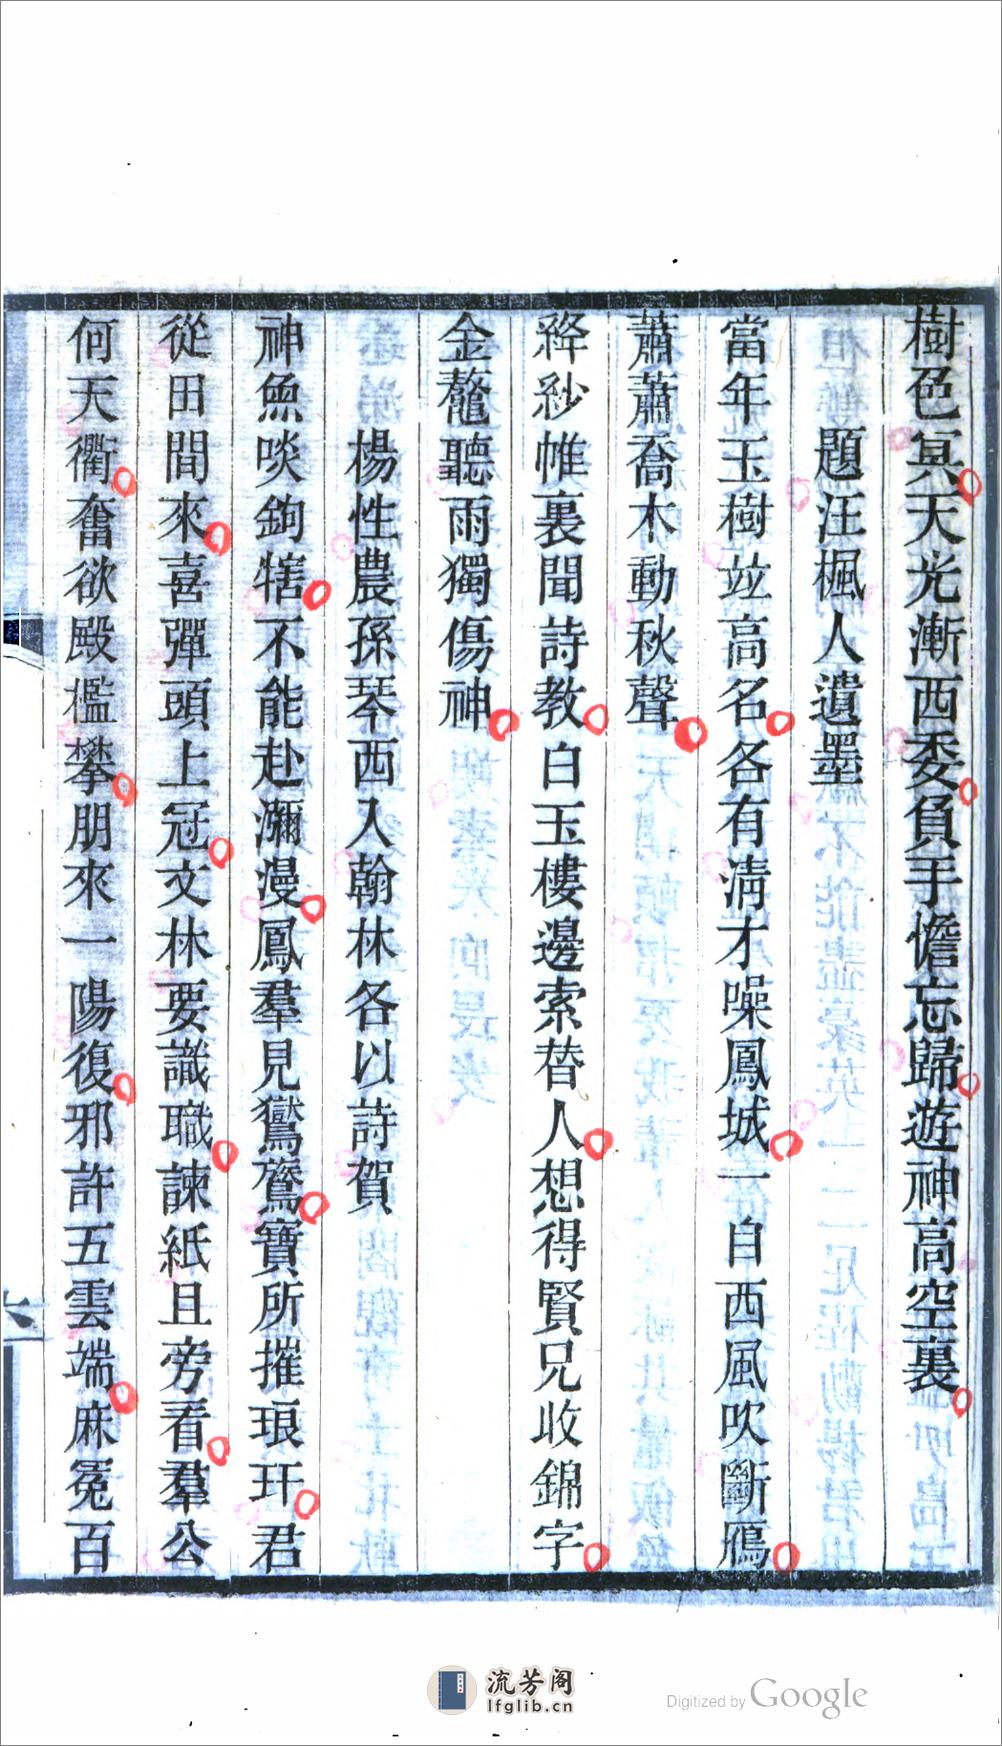 樹色冥天光漸西委負手憺忘歸遊神高空裏
題汪楓人遺墨
當年玉樹竝高名各有淸才噪鳳城一自西風吹斷鴈
蕭蕭喬木動秋聲
絳紗帷裏聞詩敎白玉樓邊索替人想得賢兄收錦字
金鼇聽雨獨傷神
楊性農孫琴西入翰林各以詩賀
神魚啖鉤犗不能赴瀰漫鳳羣見鸑鷟寶所摧琅玕君
從田間來喜彈頭上冠文林要識職諫紙且旁看羣公
何天衢奮欲殿檻攀朋來一陽復邪許五雲端麻冤百
六
流芳阁
lfglib.cn
Digitized by Google